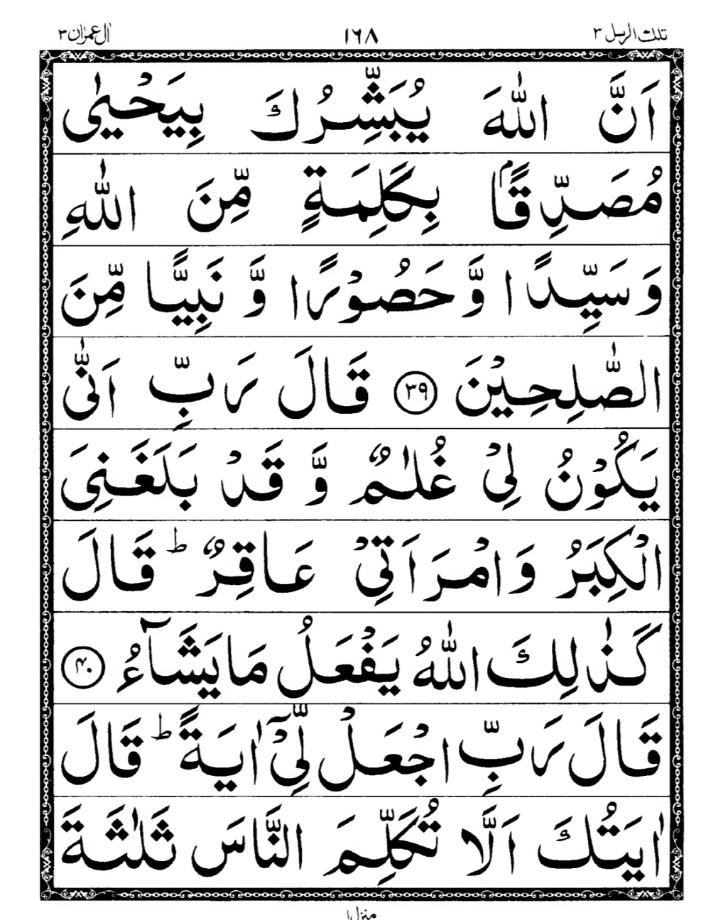 تلك الرسل ۳
۱۶۸
اٰل عمرٰن ۳
اَنَّ اللّٰهَ يُبَشِّرُكَ بِيَحْيٰى
مُصَدِّقًۢا بِكَلِمَةٍ مِّنَ اللّٰهِ
وَسَيِّدًا وَّحَصُوْرًا وَّ نَبِيًّا مِّنَ
الصّٰلِحِيْنَ ﴿۳۹﴾ قَالَ رَبِّ اَنّٰى
يَكُوْنُ لِيْ غُلٰمٌ وَّ قَدْ بَلَغَنِيَ
الْكِبَرُ وَامْرَاَتِيْ عَاقِرٌ ؕ قَالَ
كَذٰلِكَ اللّٰهُ يَفْعَلُ مَا يَشَآءُ ﴿۴۰﴾
قَالَ رَبِّ اجْعَلْ لِّيْۤ اٰيَةً ؕ قَالَ
اٰيَتُكَ اَلَّا تُكَلِّمَ النَّاسَ ثَلٰثَةَ
منزل ۱